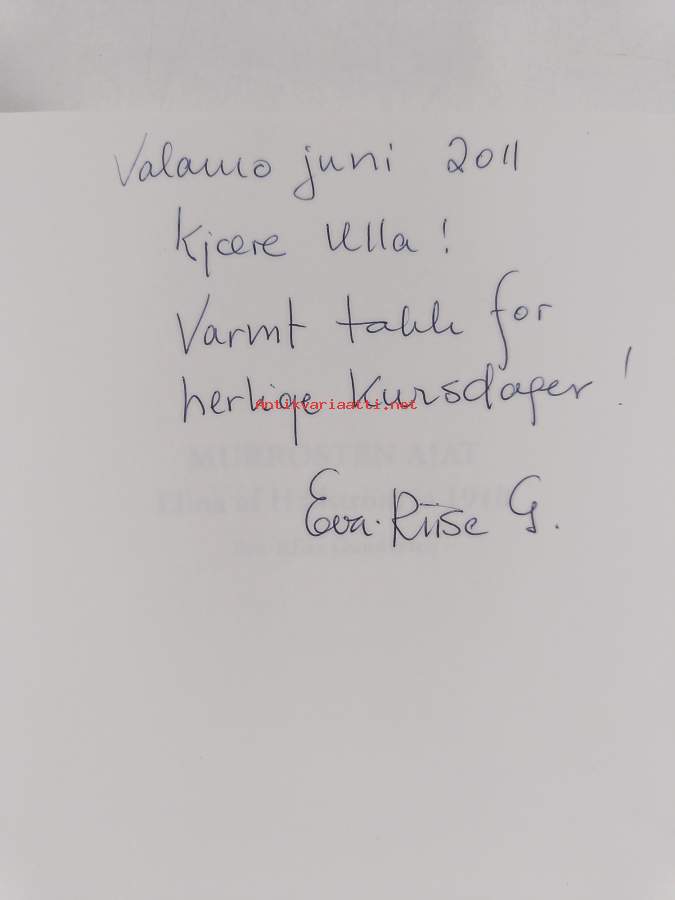 Valamo juni 2011
Kjære Ulla!
Varmt takk for
herlige kursdager!
Antikvariaatti.net
MURROSTEN AJAT
Eva-Riise G.